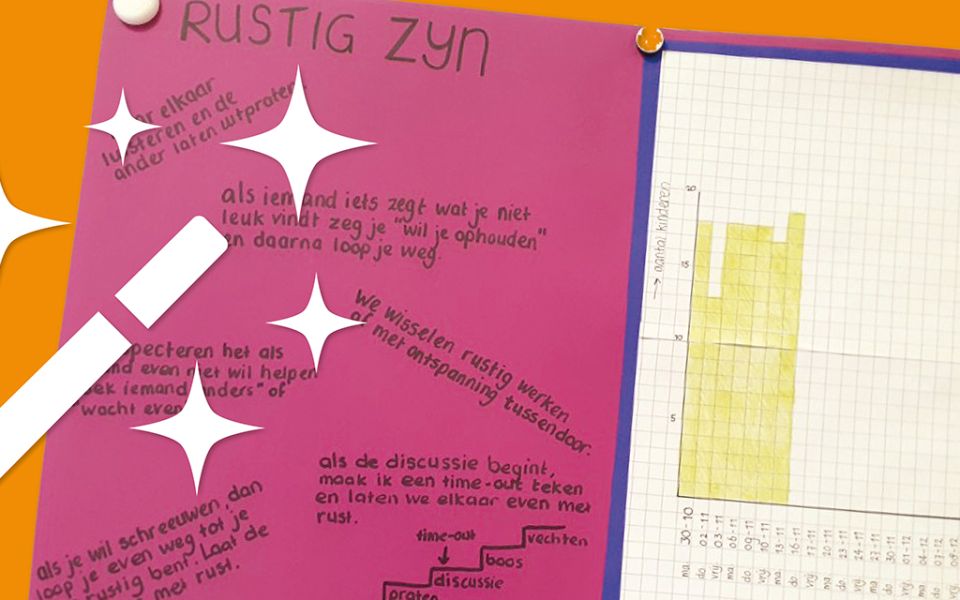 RUSTIG ZYN
elkaar
luisteren en de
ander laten uitpraten.
als iemand iets zegt wat je niet
leuk vindt zeg je "wil je ophouden"
en daarna loop je weg.
We wisselen rustig werken
af met ontspanning tussendoor.
het als
even niet wil helpen
iemand anders" of
"wacht even
als de discussie begint,
maak ik een time-out teken
en laten we elkaar even met
rust.
als je wil schreeuwen, dan
loop je even weg tot je
rustig bent. Laat de
met rust.
time-out
vechten
boos
discussie
praten
→ aantal kinderen
10
5
ma. 30-10
do 02-11
vrij 03-11
ma 06-11
do 09-11
vrij 10-11
ma 13-11
do 16-11
vrij 17-11
ma 20-11
do 23-11
vrij 24-11
ma 27-11
do 30-11
vrij 01-12
ma 04-12
do 07-12
vrij 08-12